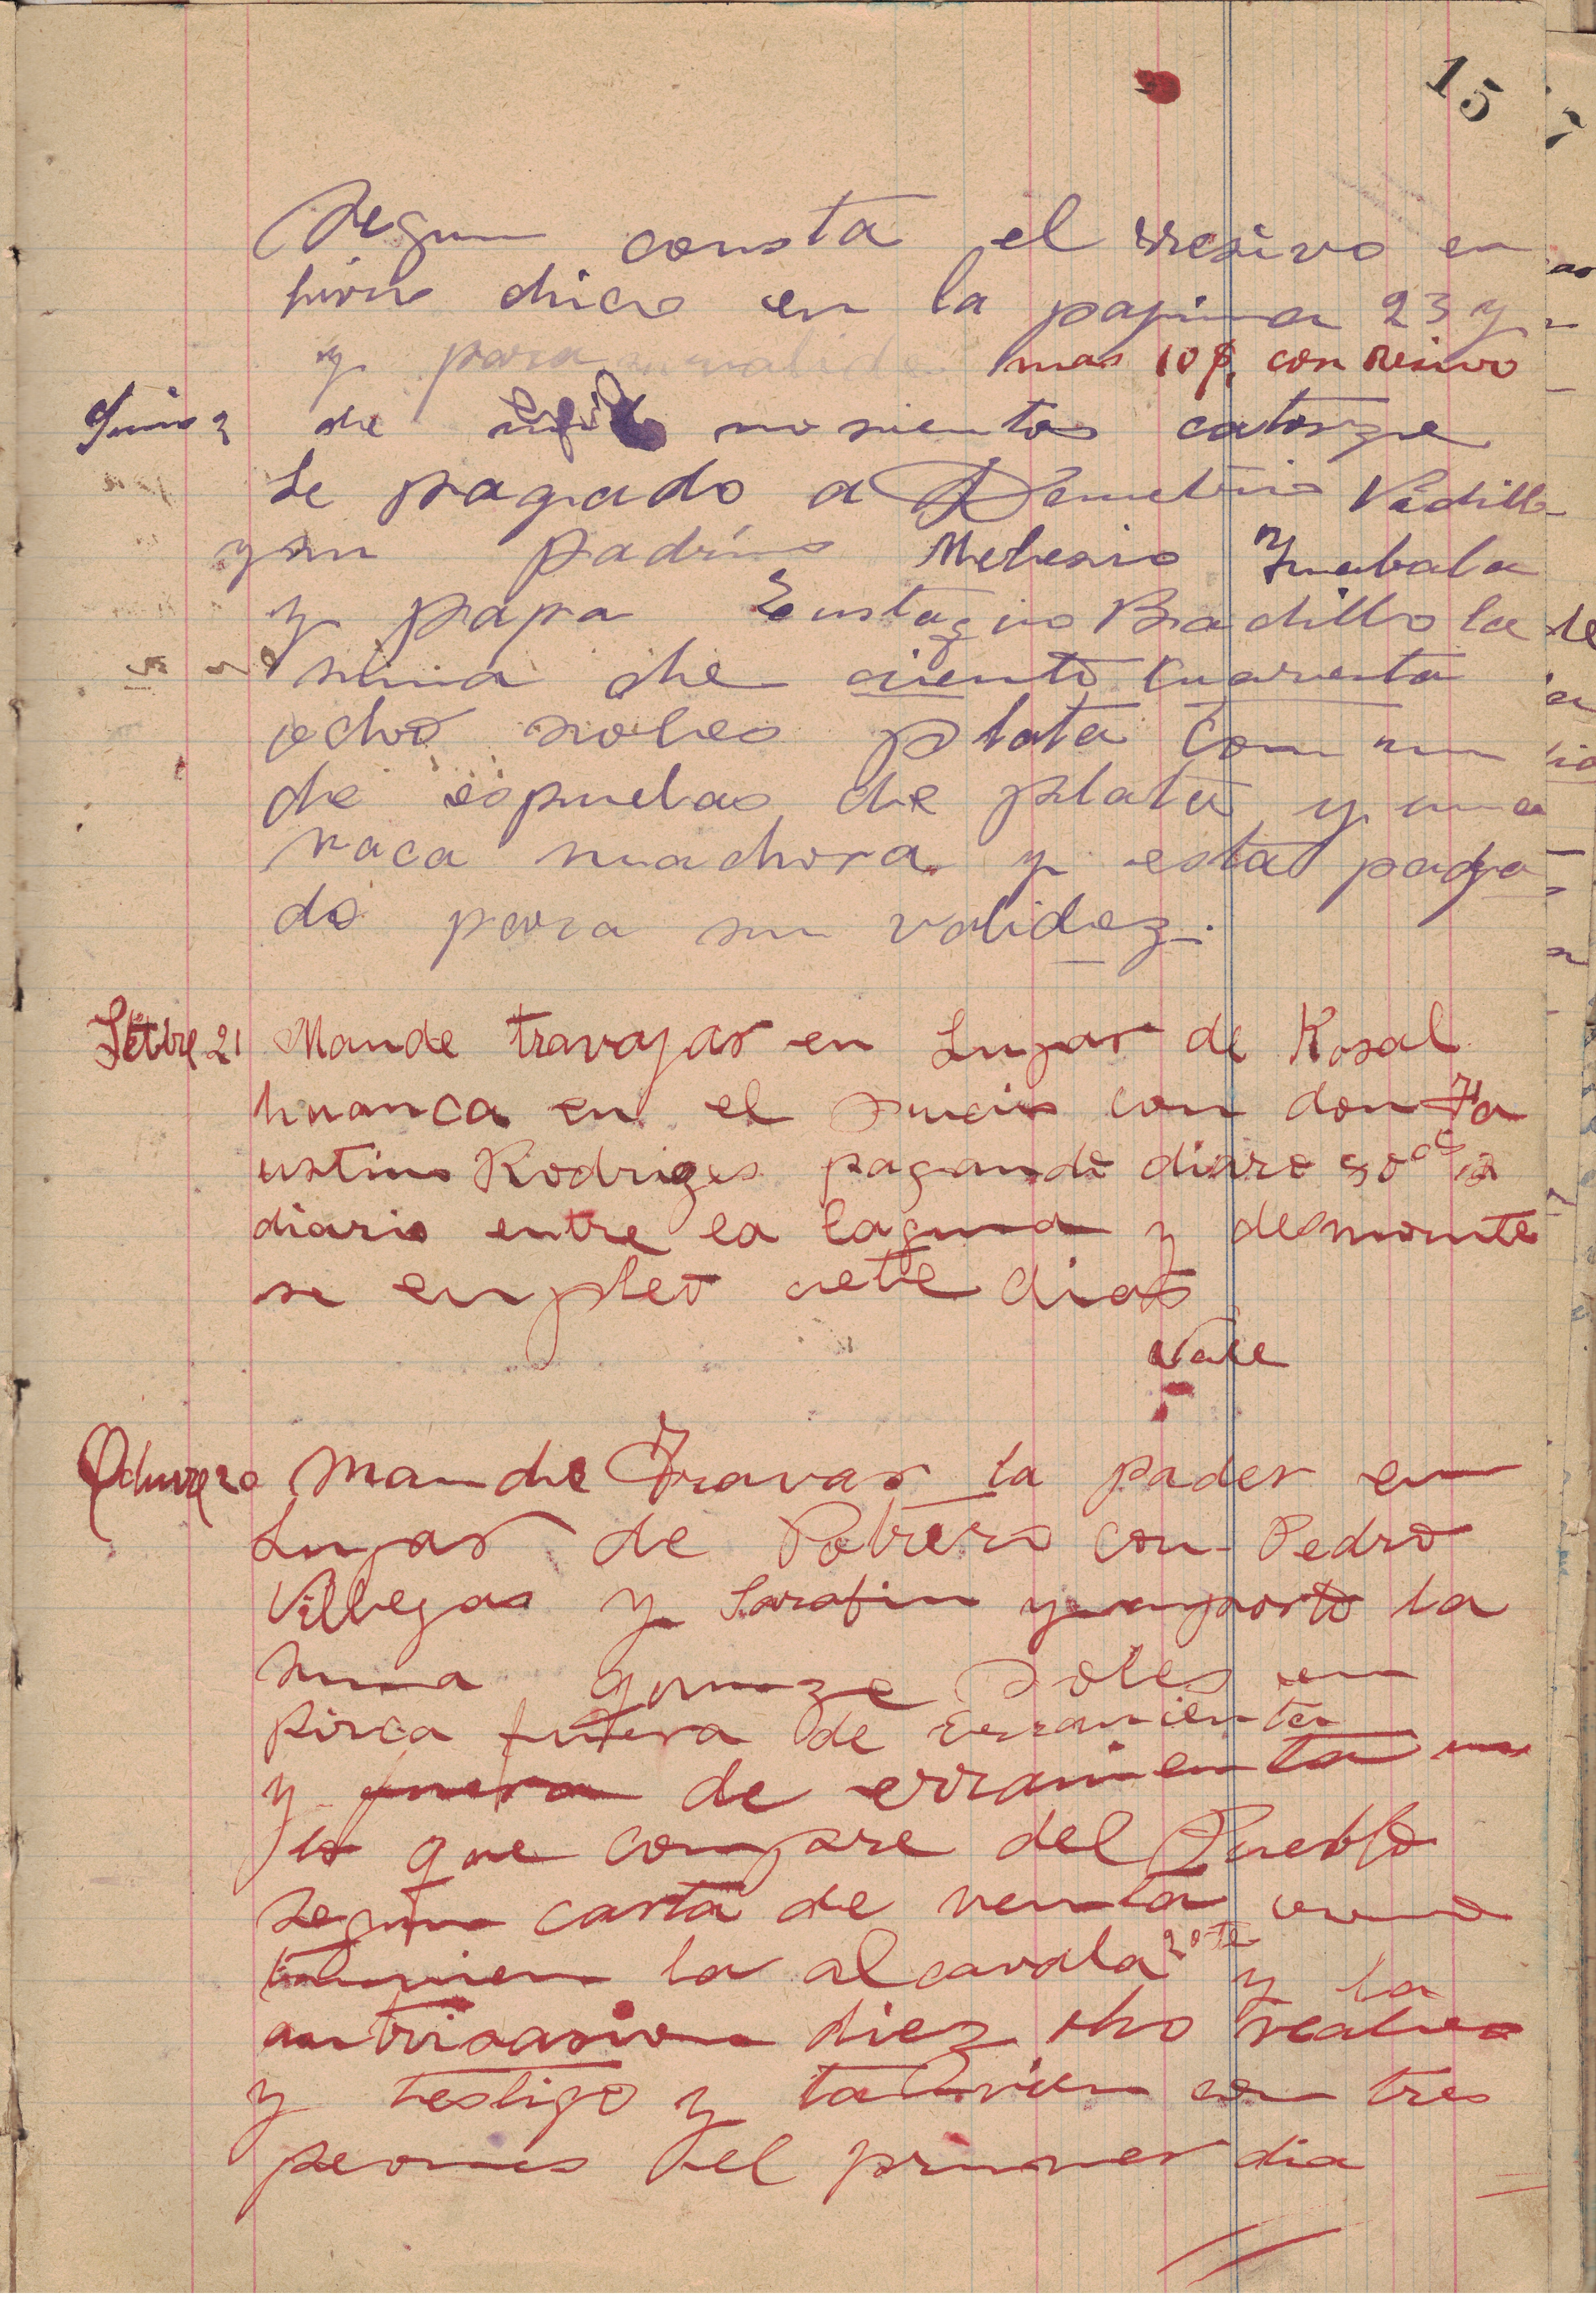 15
Segun consta el rresivo en
livro chico en la pagina 23 y
y para mas 10 $. con resivo
Junio 2 de mil nosientos catorze
Se pagado a Demetrio Vadillo
y su padrino Melesio
y papa Eustaqio Badillo la
suma de ciento cuarenta
ocho soles plata con un
de espuelas de plata y una
vaca machora y esta paga
do para su validez.
Setbre 21 Mande travajar en Lugar de Kosal
huanca en el sucio con don Fa
ustino Rodriges pagando diaro 50 cts
diario entre la laguna y desmonte
se enpleo siete dias
Vale
Octuvre 20 Mande Travar la pader en
Lugar de Potrero con Pedro
Villegas y Sarafin y inporto la
suma quinze soles en
pirca fuera de erramienta
y fuera de erramienta
lo que compre del Pueblo
segun carta de venta
tamvien la alcavala y la
autorisasion diez ocho reales
y testigo y tamvien con tres
peones el primer dia